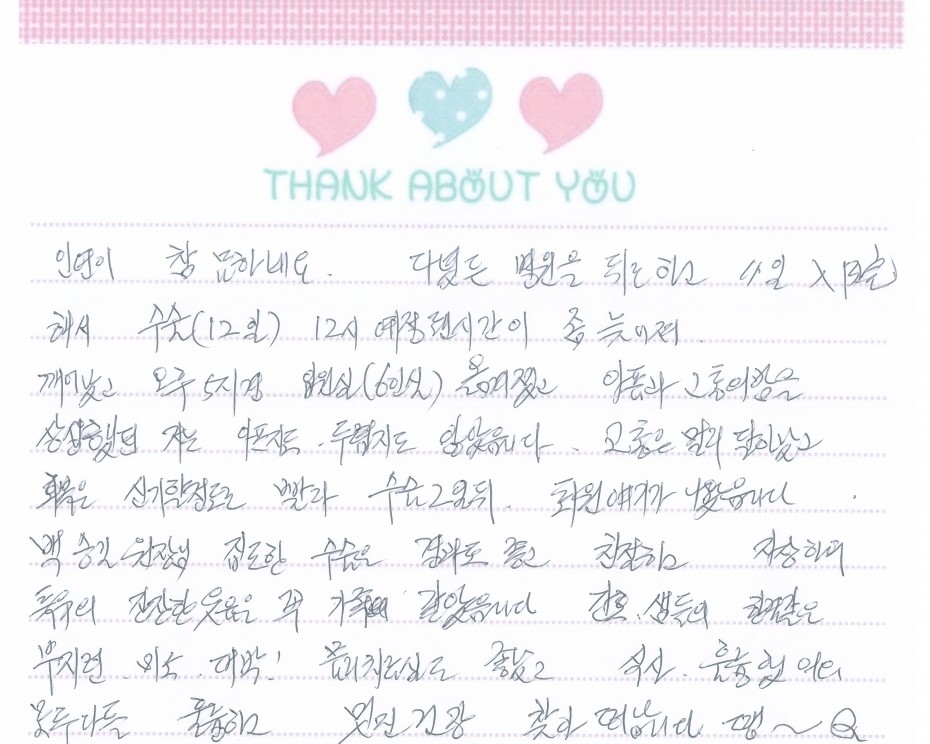 THANK ABOUT YOU
인연이 참 묘하네요. 다녔든 병원을 뒤로하고 11일
해서 수술(12일) 12시 예정된시간이 좀 늦어져.
깨어났고 오후 5시경 입원실(6인실) 옮겨졌고 아픔과 고통의함을
상상했던 저는 아프지도. 두렵지도 않았습니다. 고통은 멀리 달아났고
회복은 신기할정도로 빨라 수술2일뒤. 퇴원얘기가 나왔습니다.
백승길 원장님 집도한 수술은 결과도 좋고 친절하고 자상하며
특유의 잔잔한 웃음은 꼭 가족 같았습니다 간호.샘들의 한결같은
부지런.미소.대박! 물리치료실도 좋았고 식사.훌륭했
모두다들 훌륭하고 멋진건강 찾아 떠납니다 땡~Q